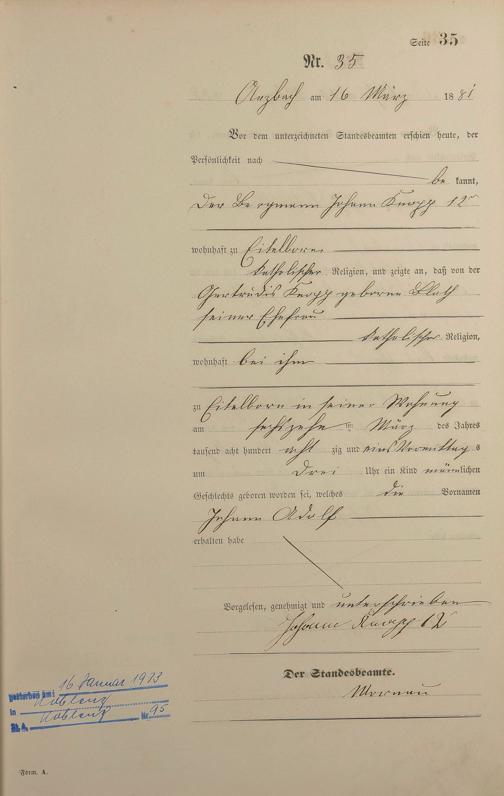 Seite 35
Nr. 35
Arzbach am 16 März 1881
Vor dem unterzeichneten Standesbeamten erschien heute, der
Persönlichkeit nach
be kannt,
der Bergmann Johann Knopp 12r
wohnhaft zu Eitelborn
katholischer Religion, und zeigte an, daß von der
Gertrudis Knopp geborene Blath
seiner Ehefrau
katholischer Religion,
wohnhaft bei ihm
zu Eitelborn in seiner Wohnung
am sechszehn ten März des Jahres
tausend acht hundert acht zig und eins Vormittag s
um Drei Uhr ein Kind männlichen
Geschlechts geboren worden sei, welches die Vornamen
Johann Adolf
erhalten habe
Vorgelesen, genehmigt und unterschrieben
Johann Knopp 12
Der Standesbeamte.
gestorben am: 16 Januar 1973
in Koblenz
St. A. Koblenz Nr. 95
Form. A.